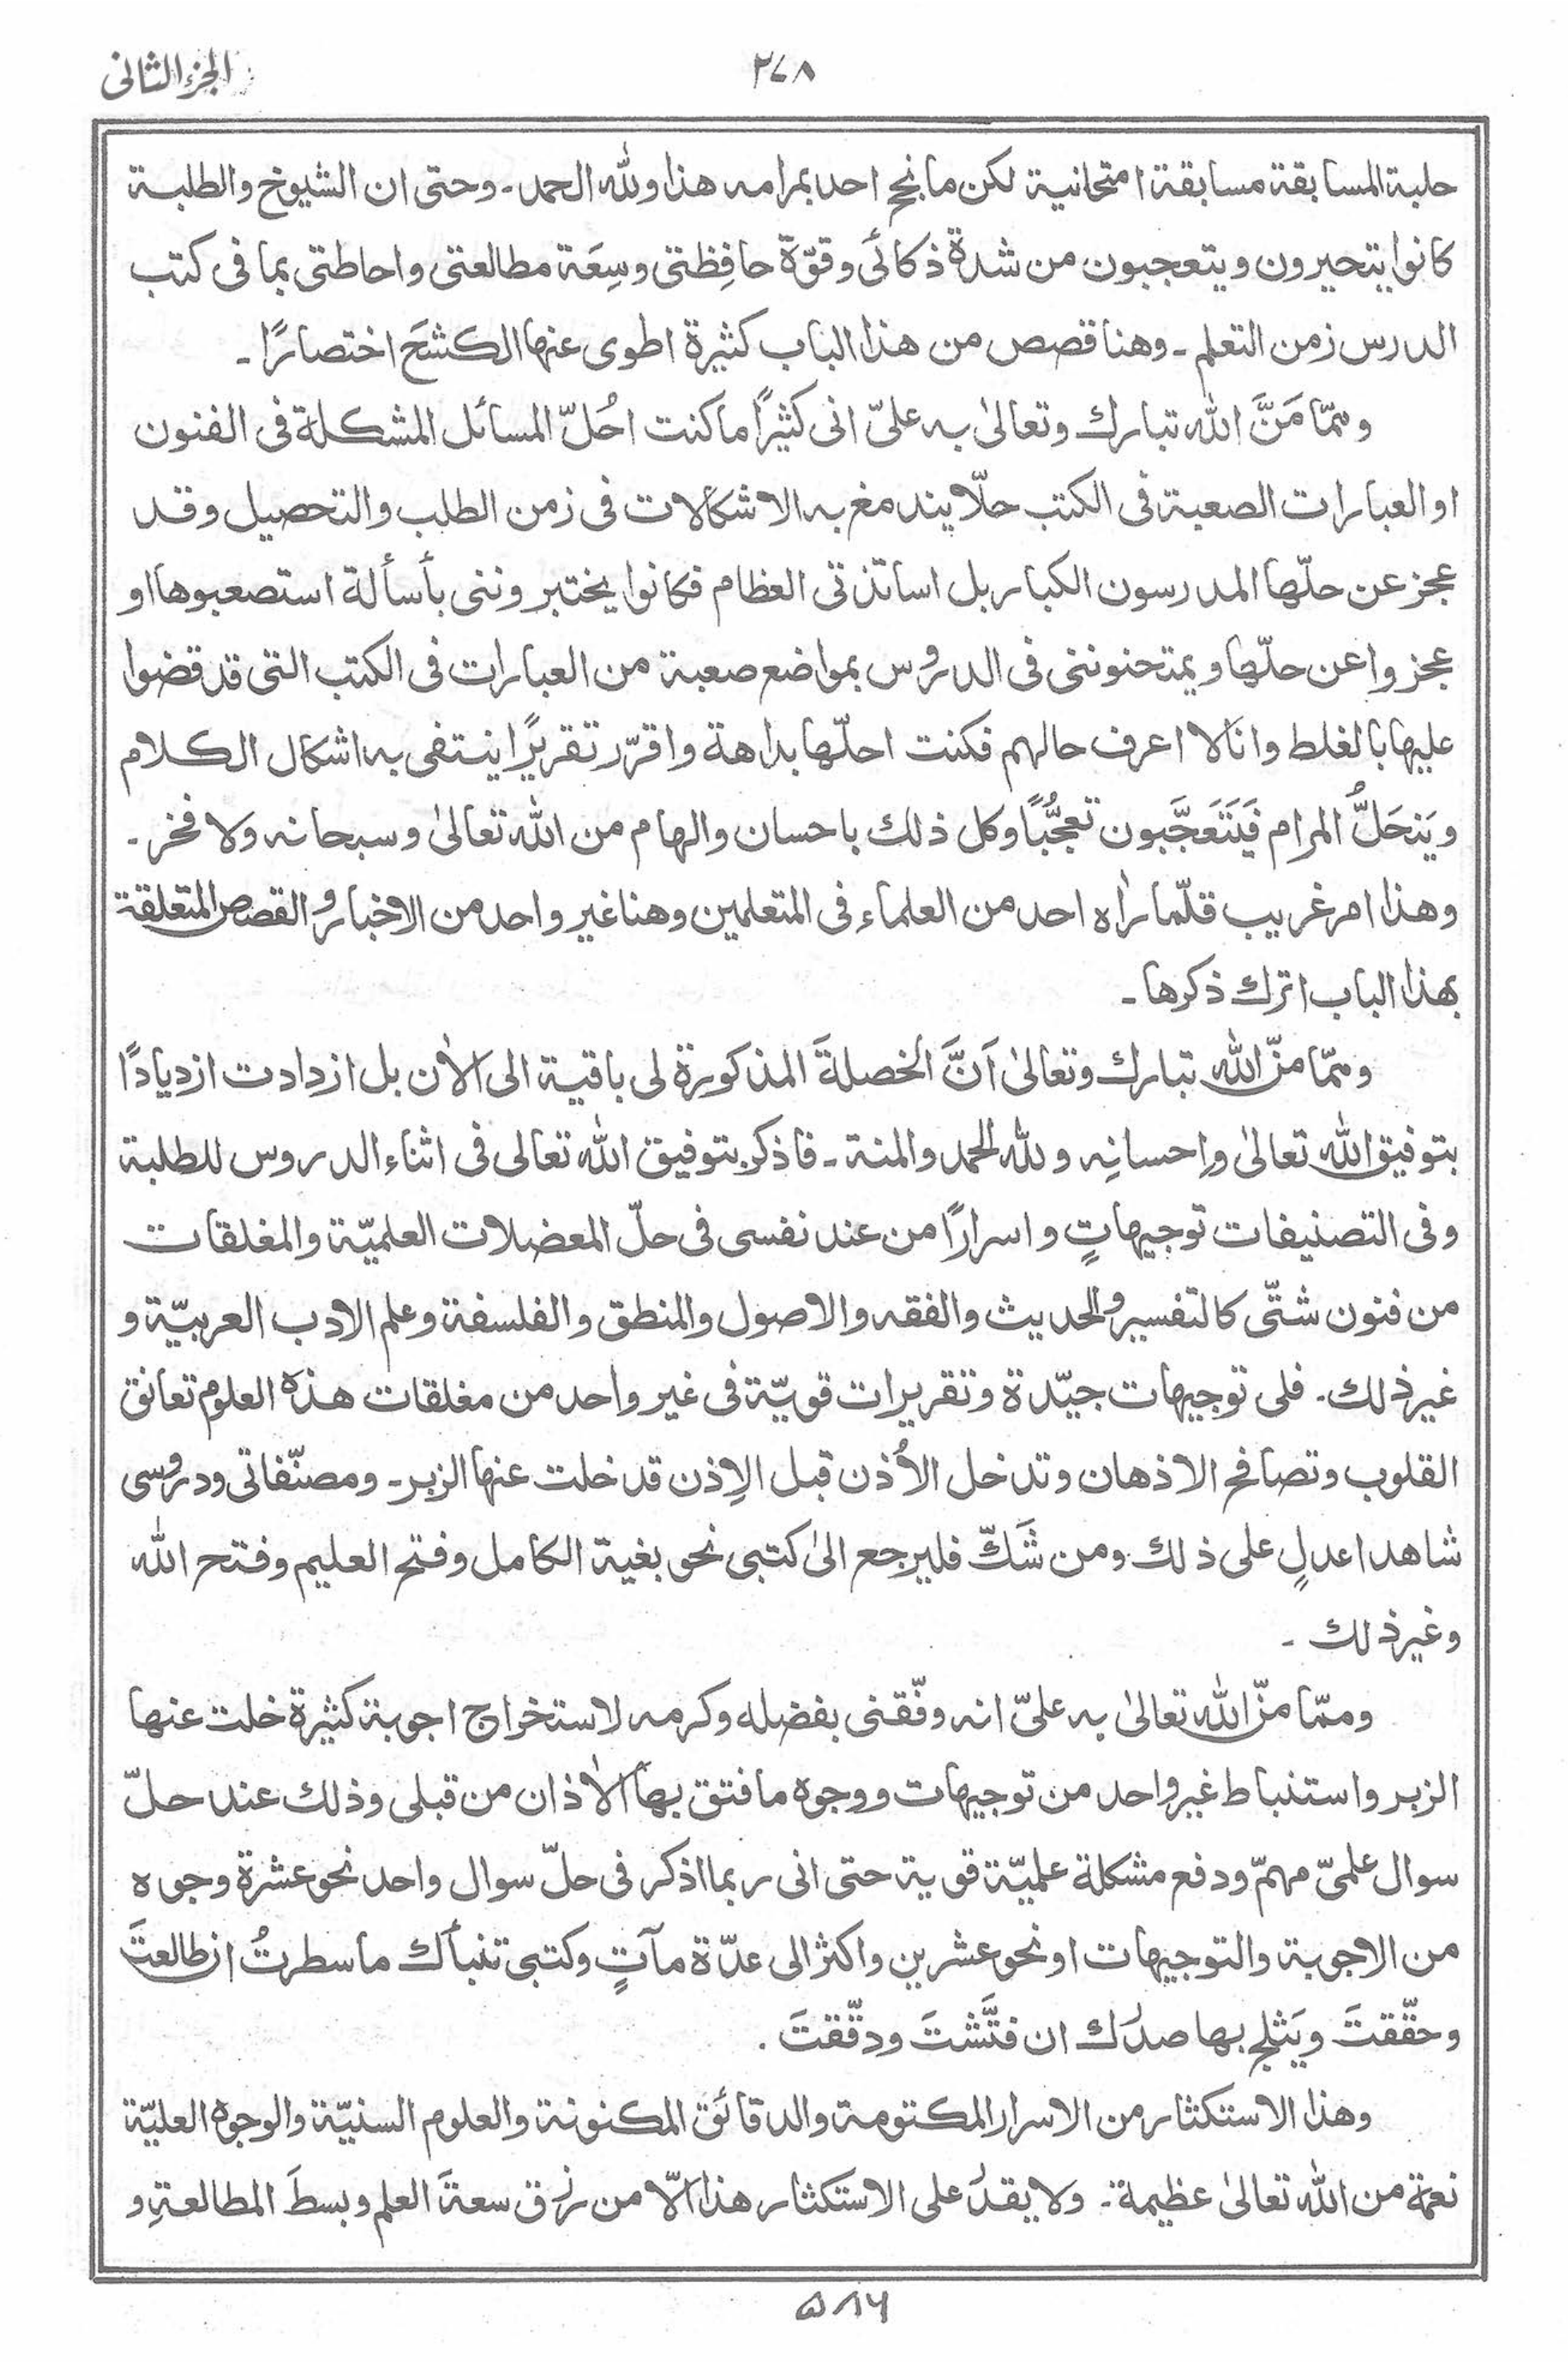 الجزء الثانی
۲۷۸
حلبة المسابقة مسابقة امتحانية لكن ما نجح احد بمرامه هذا ولله الحمد۔ وحتى ان الشيوخ والطلبة
كانوا يتحيرون ويتعجبون من شدة ذكائى وقوّة حافِظتى وسِعَة مطالعتى واحاطتى بما فى كتب
الدرس زمن التعلم ۔ وهنا قصص من هذا الباب كثيرة اطوى عنها الكشحَ اختصارًا ۔
وممّا مَنَّ الله تبارك وتعالىٰ به علىّ انى كثيرًا ما كنت احُلّ المسائل المشكلة فى الفنون
او العبارات الصعبة فى الكتب حلّا يندمغ به الاشكالات فى زمن الطلب والتحصيل وقد
عجز عن حلّها المدرسون الكبار بل اساتذتى العظام فكانوا يختبروننى بأسألة استصعبوها او
عجزوا عن حلّها ويمتحنوننى فى الدروس بمواضع صعبة من العبارات فى الكتب التى قد قضوا
عليها بالغلط وانا لا اعرف حالهم فكنت احلّها بداهة واقرّر تقريرًا ينتفى به اشكال الكلام
ويَنحَلُّ المرام فَيَتَعَجَّبون تعجُّبًا وكل ذلك باحسان والهام من الله تعالىٰ وسبحانه ولا فخر۔
وهذا امر غريب قلّما راٰه احد من العلماء فى المتعلمين وهنا غير واحد من الاخبار والقصص المتعلقة
بهذا الباب اترك ذكرها ۔
وممّا منّ الله تبارك وتعالىٰ اَنَّ الخصلةَ المذكورة لى باقية الى الاٰن بل ازدادت ازديادًا
بتوفيق الله تعالىٰ واِحسانِه ولله الحمد والمنة ۔ فاذكر بتوفيق الله تعالى فى اثناء الدروس للطلبة
وفى التصنيفات توجيهاتٍ واسرارًا من عند نفسى فى حلّ المعضلات العلميّة والمغلقات
من فنون شتّى كالتفسير والحديث والفقه والاصول والمنطق والفلسفة وعلم الادب العربيّة و
غير ذلك۔ فلى توجيهات جيّدة وتقريرات قويّة فى غير واحد من مغلقات هذه العلوم تعانق
القلوب وتصافح الاذهان وتدخل الاُذن قبل الاِذن قد خلت عنها الزبر۔ ومصنّفاتى ودروسى
شاهدا عدلٍ على ذلك ومن شَكّ فليرجع الىٰ كتبى نحو بغية الكامل وفتح العليم وفتح الله
وغير ذلك ۔
وممّا منّ الله تعالىٰ به علىّ انه وفّقنى بفضله وكرمه لاستخراج اجوبة كثيرة خلت عنها
الزبر واستنباط غير واحد من توجيهات ووجوه ما فتق بها الاٰذان من قبلى وذلك عند حلّ
سوال علمىّ مهمّ ودفع مشكلة علميّة قوية حتى انى ربما اذكر فى حلّ سوال واحد نحو عشرة وجوه
من الاجوبة والتوجيهات او نحو عشرين واكثر الى عدّة مآتٍ وكتبى تنبأك ما سطرتُ ان طالعتَ
وحقّقتَ ويَثلج بها صدرك ان فتَّشتَ ودقّقتَ .
وهذا الاستكثار من الاسرار المكتومة والدقائق المكنونة والعلوم السنيّة والوجوه العليّة
نعمة من الله تعالىٰ عظيمة۔ ولا يقدر على الاستكثار هذا الّا من رزق سعةَ العلم وبسطَ المطالعةِ و